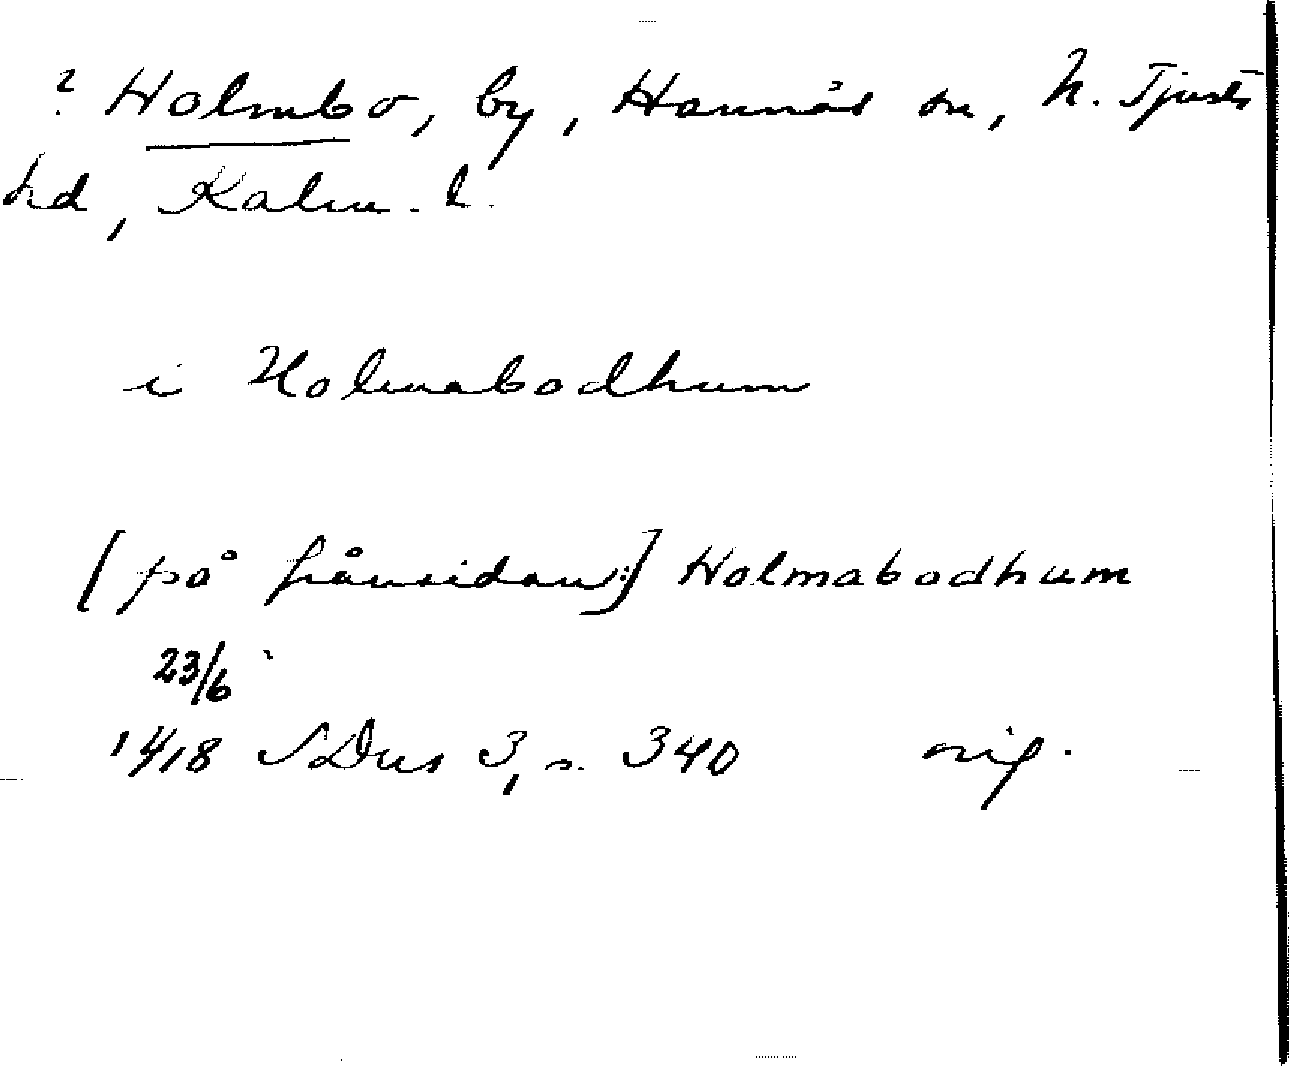 ? Holmbo, by, Hannäs sn, N. Tjusts
hd, Kalm. l.
i Holmabodhum
[på frånsidan:] Holmabodhum
23/6
1418 SDns 3, s. 340 orig.